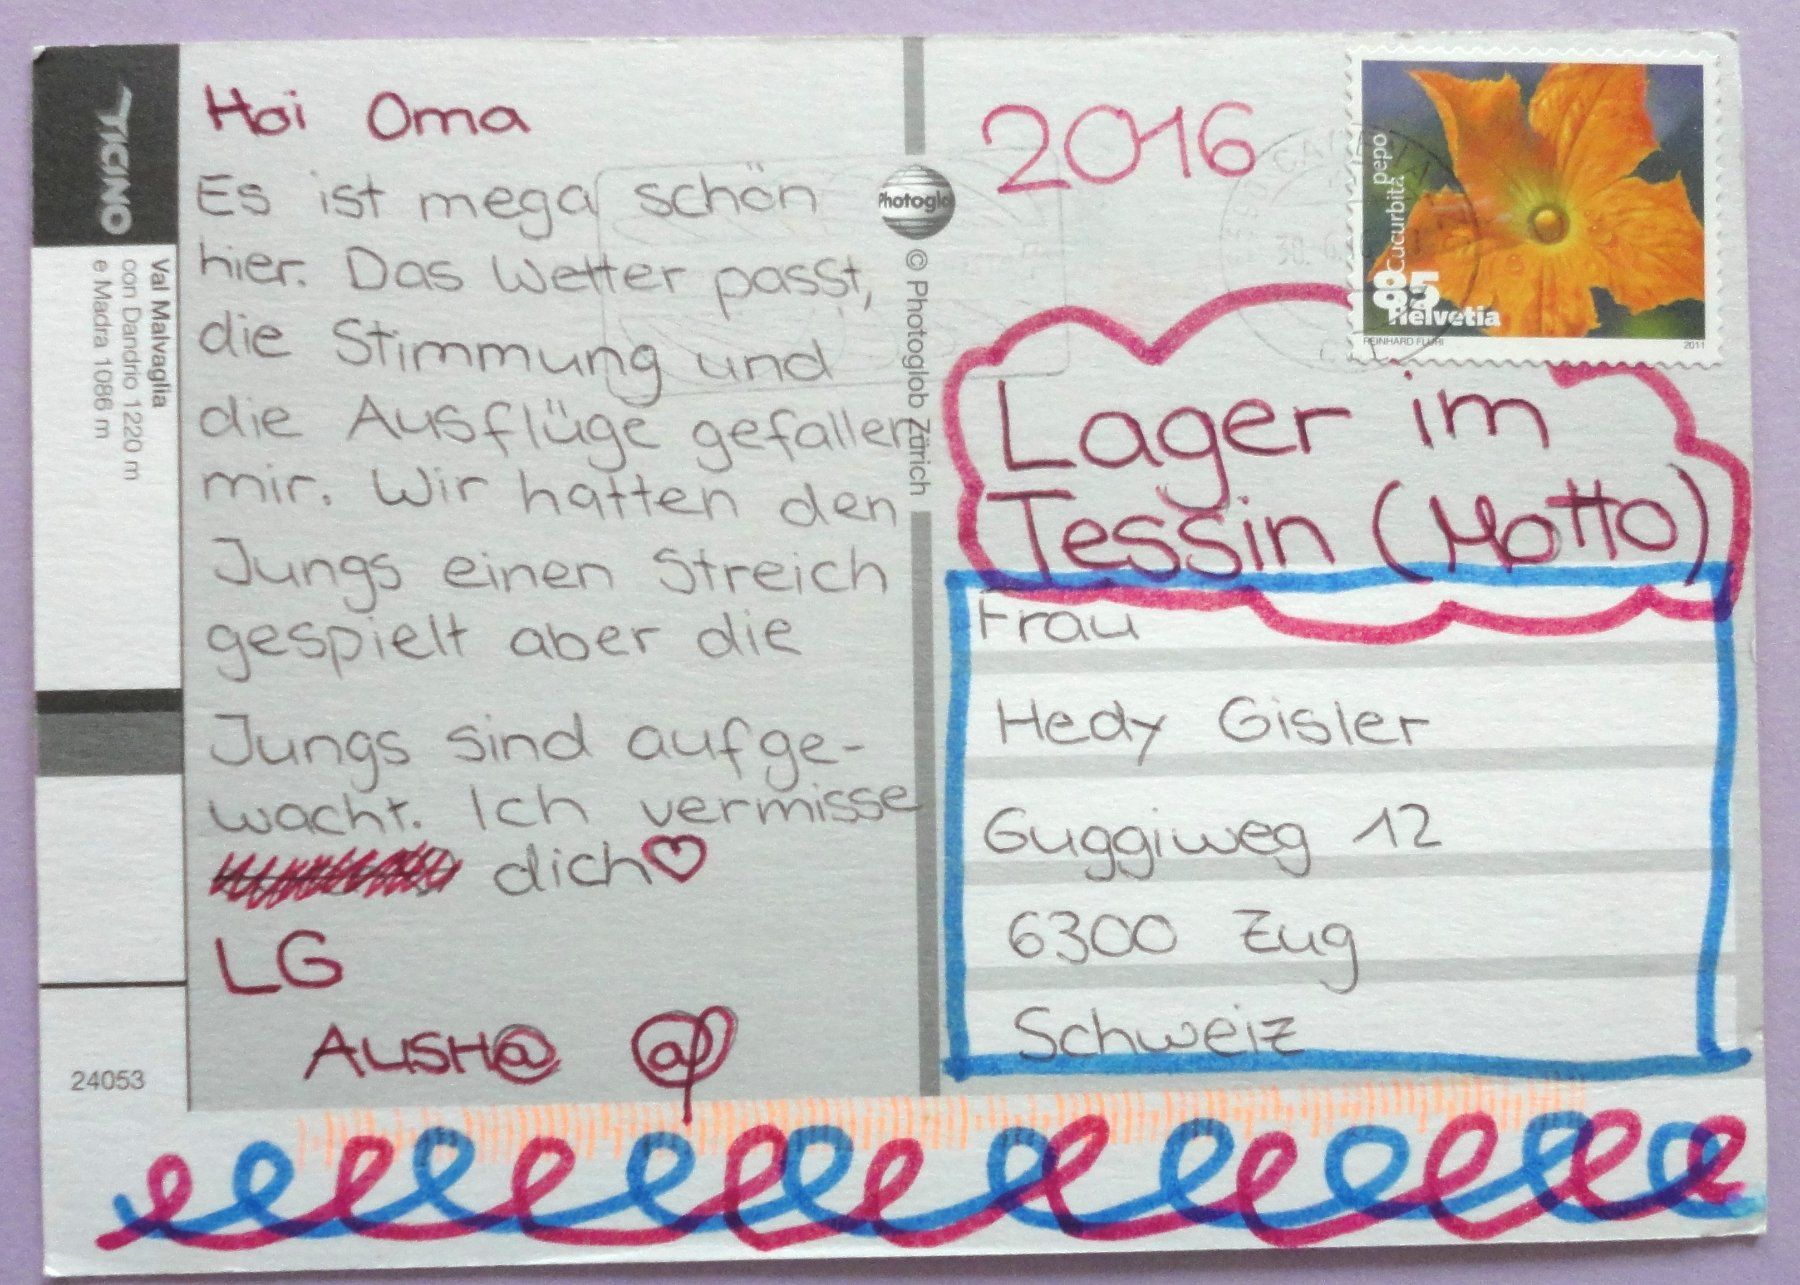 TICINO
Val Malvaglia
con Dandrio 1220 m
e Madra 1086 m
24053
Hoi Oma
Es ist mega schön
hier. Das Wetter passt,
die Stimmung und
die Ausflüge gefallen
mir. Wir hatten den
Jungs einen Streich
gespielt aber die
Jungs sind aufge-
wacht. Ich vermisse
dich♡
LG
ALISH@
Photoglo
© Photoglob Zürich
2016
Cucurbita pepo
85
Helvetia
REINHARD FLURI
2011
Lager im
Tessin (Motto)
Frau
Hedy Gisler
Guggiweg 12
6300 Zug
Schweiz